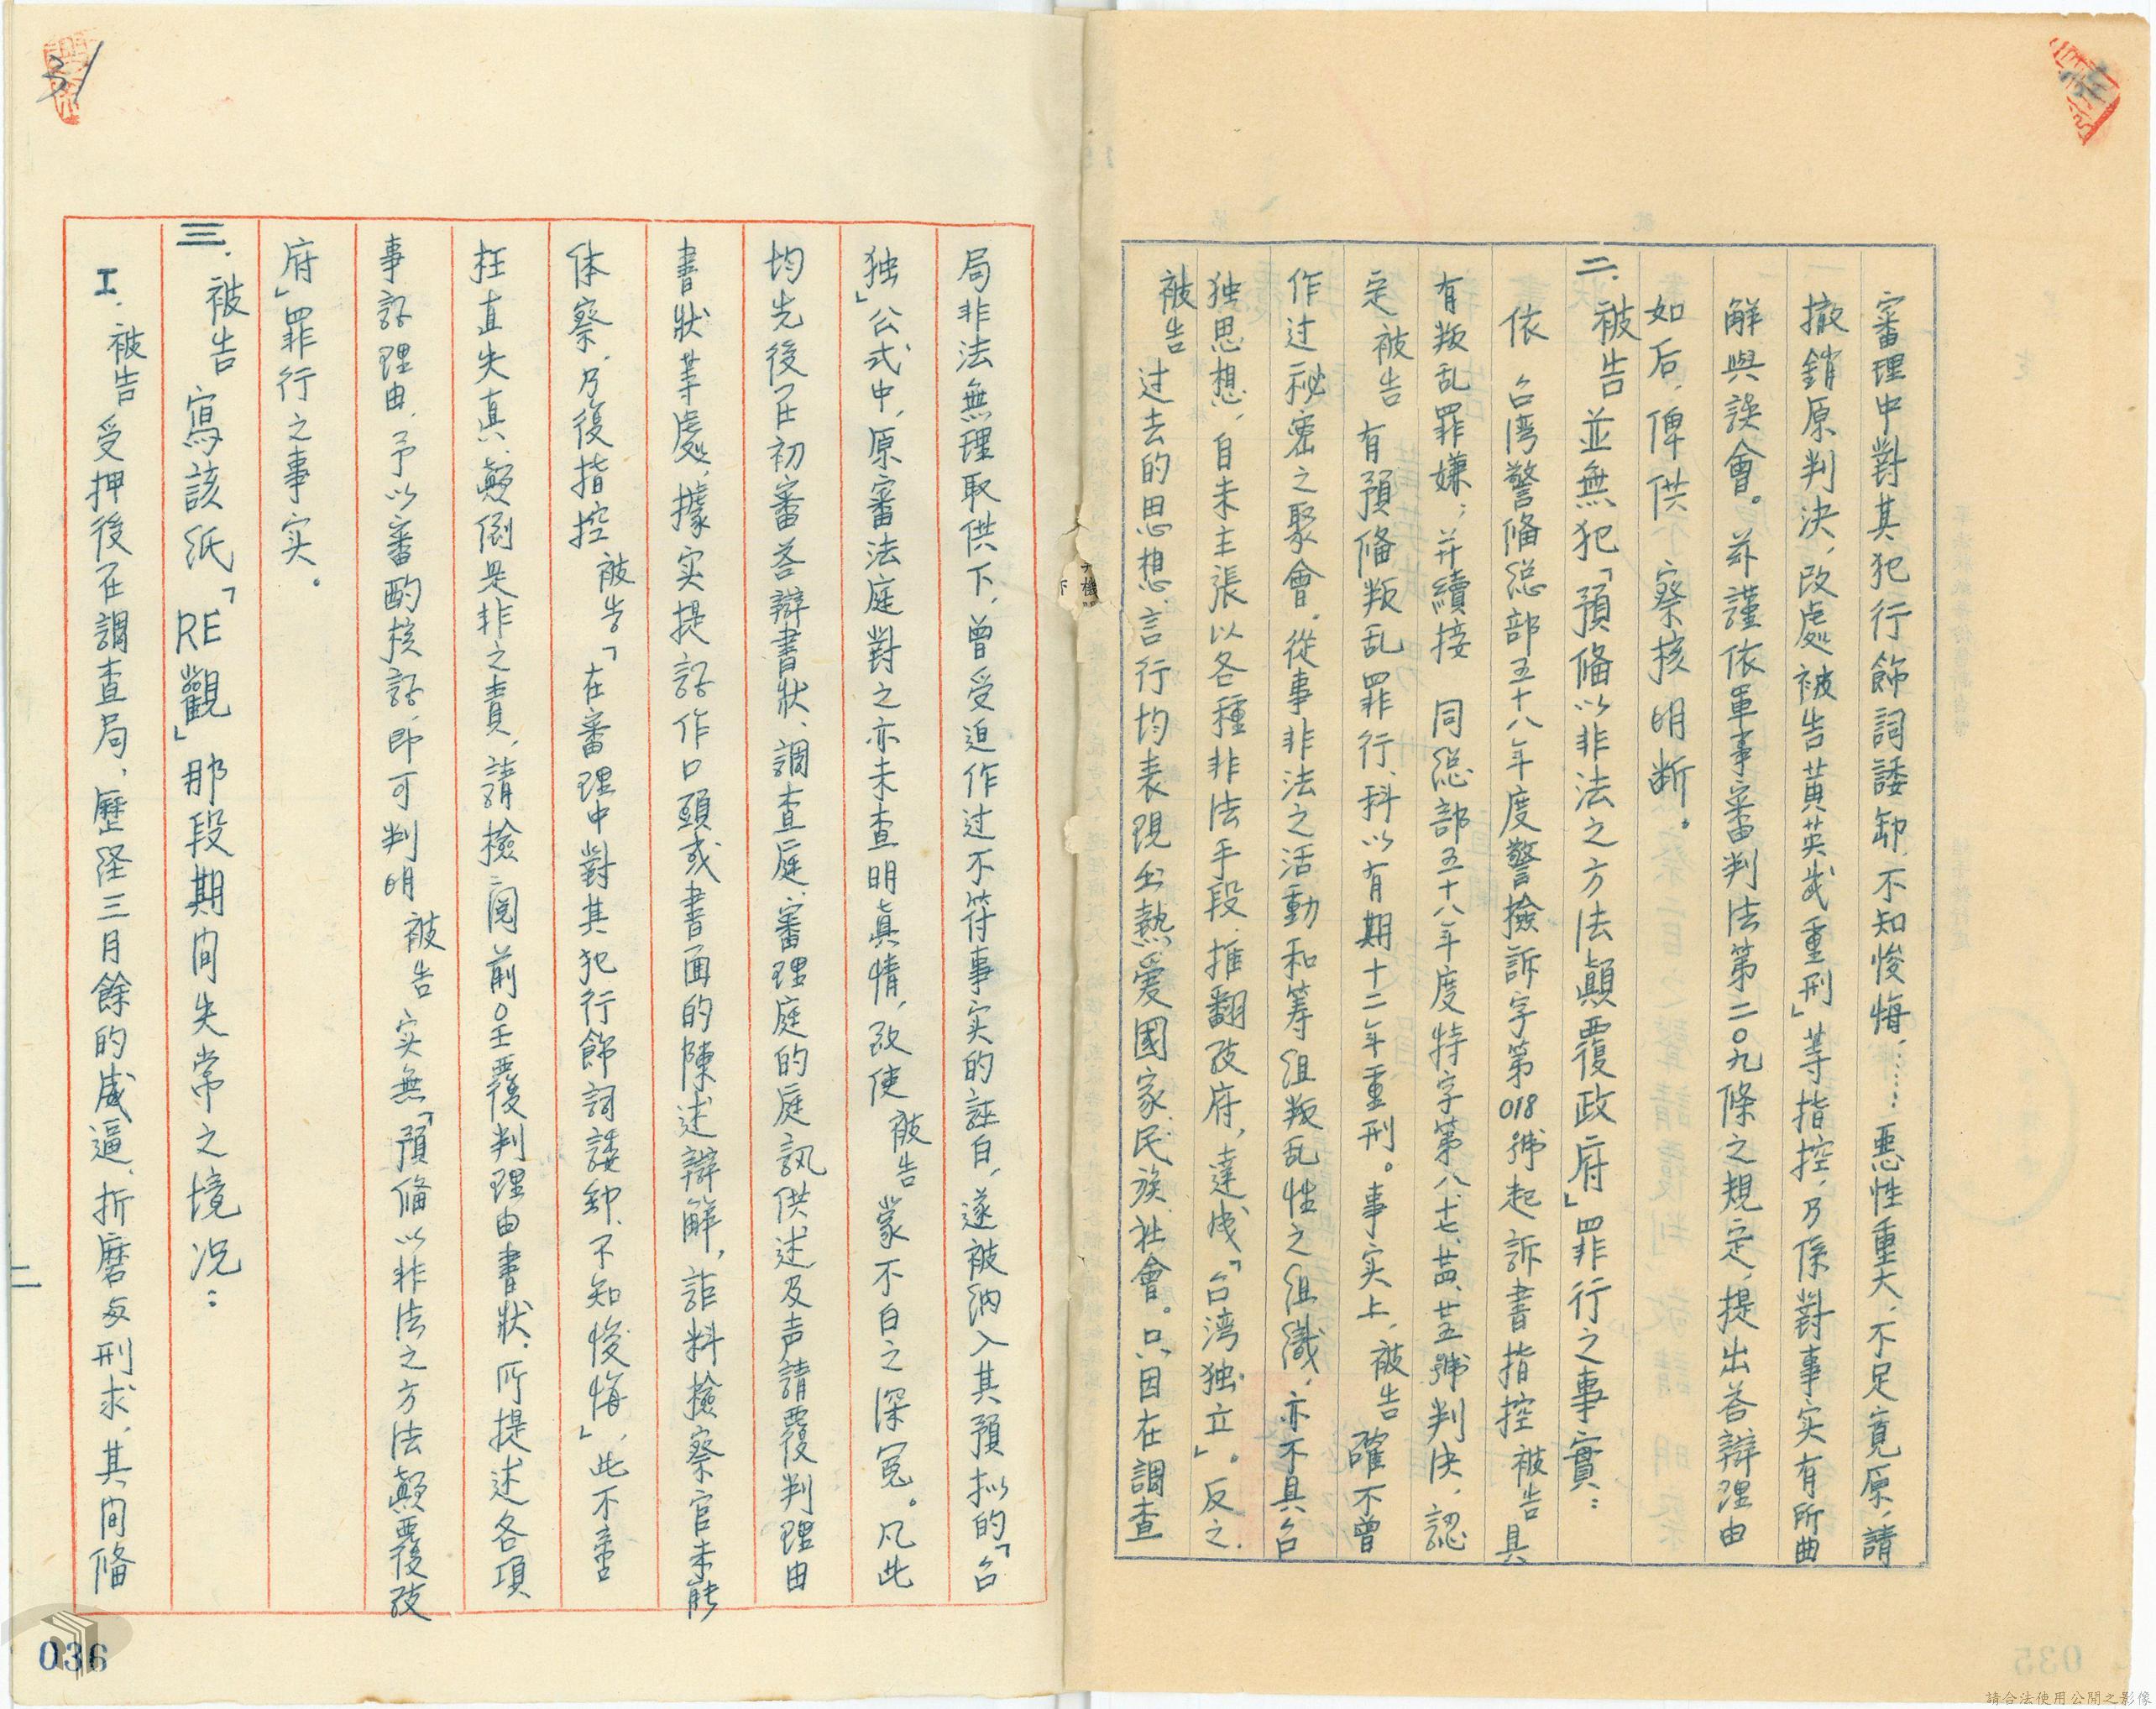 審理中對其犯行飾詞諉卸、不知悛悔、……惡性重大、不足寬原、請
撤銷原判決、改處被告黃英武重刑」等指控、乃係對事实有所曲
解與誤會。茲謹依軍事審判法第二〇九條之規定、提出答辯理由
如后、俾供　察核明断。
二、被告並無犯「預俻以非法之方法顛覆政府」罪行之事實：
依　台湾警俻総部五十八年度警撿訴字第018號起訴書指控被告具
有叛乱罪嫌；并續接　同総部五十八年度特字第八十七、廿四、廿五號判決、認
定被告有預俻叛乱罪行、科以有期十二年重刑。事实上、被告確不曾
作过祕密之聚會、從事非法之活動和筹组叛乱性之组織、亦不具台
独思想、自未主張以各種非法手段、推翻政府、達成「台湾独立」。反之、
被告过去的思想、言行均表現出熱爱國家、民族、社會。只因在調查
局非法無理取供下、曾受迫作过不符事实的誣白、遂被納入其預拟的「台
独」公式中、原審法庭對之亦未查明真情、致使被告蒙不白之深冤。凡此
均先後在初審答辯書狀、調查庭、審理庭的庭訊供述及声請覆判理由
書狀等處、據实提訴作口頭或書面的陳述辯解、詎料撿察官未能
体察、乃復指控被告「在審理中對其犯行飾詞諉卸、不知悛悔」、此不啻
枉直失真、顛倒是非之責、請撿閱前〇壬覆判理由書狀、所提述各項
事証理由、予以審酌核証、即可判明被告实無「預俻以非法之方法顛覆政
府」罪行之事实。
三、被告寫該紙「RE觀」那段期间失常之境況：
I. 被告受押後在調查局、歷经三月餘的威逼、折磨与刑求、其间俻
二
31
036
035
請合法使用公開之影像